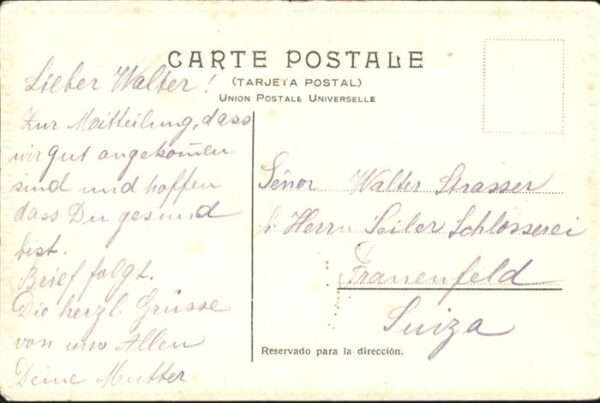 CARTE POSTALE
(TARJETA POSTAL)
UNION POSTALE UNIVERSELLE
Lieber Walter!
Zur Mitteilung, dass
wir gut angekom̄en
sind und hoffen
dass Du gesund
bist.
Brief folgt.
Die herzl. Grüsse
von uns Allen
Deine Mutter
Senor Walter Strasser
b. Herrn Seiler Schlosserei
Frauenfeld
Suiza
Reservado para la dirección.